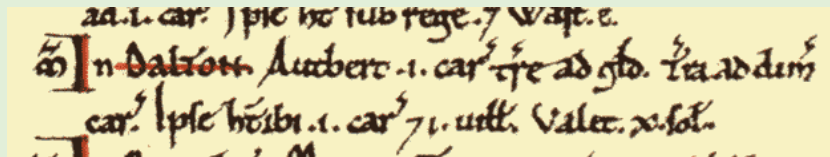 ad.i. car. Ipse ht sub rege. ⁊ Wast. e.
m̃ In Daltott. Autbert .i. car' tr̃e ad gld̃. Tr̃a ad dim̃
car'. Ipse ht̃ ibi .i. car' ⁊ i. uiłł. Valet. x. soł.